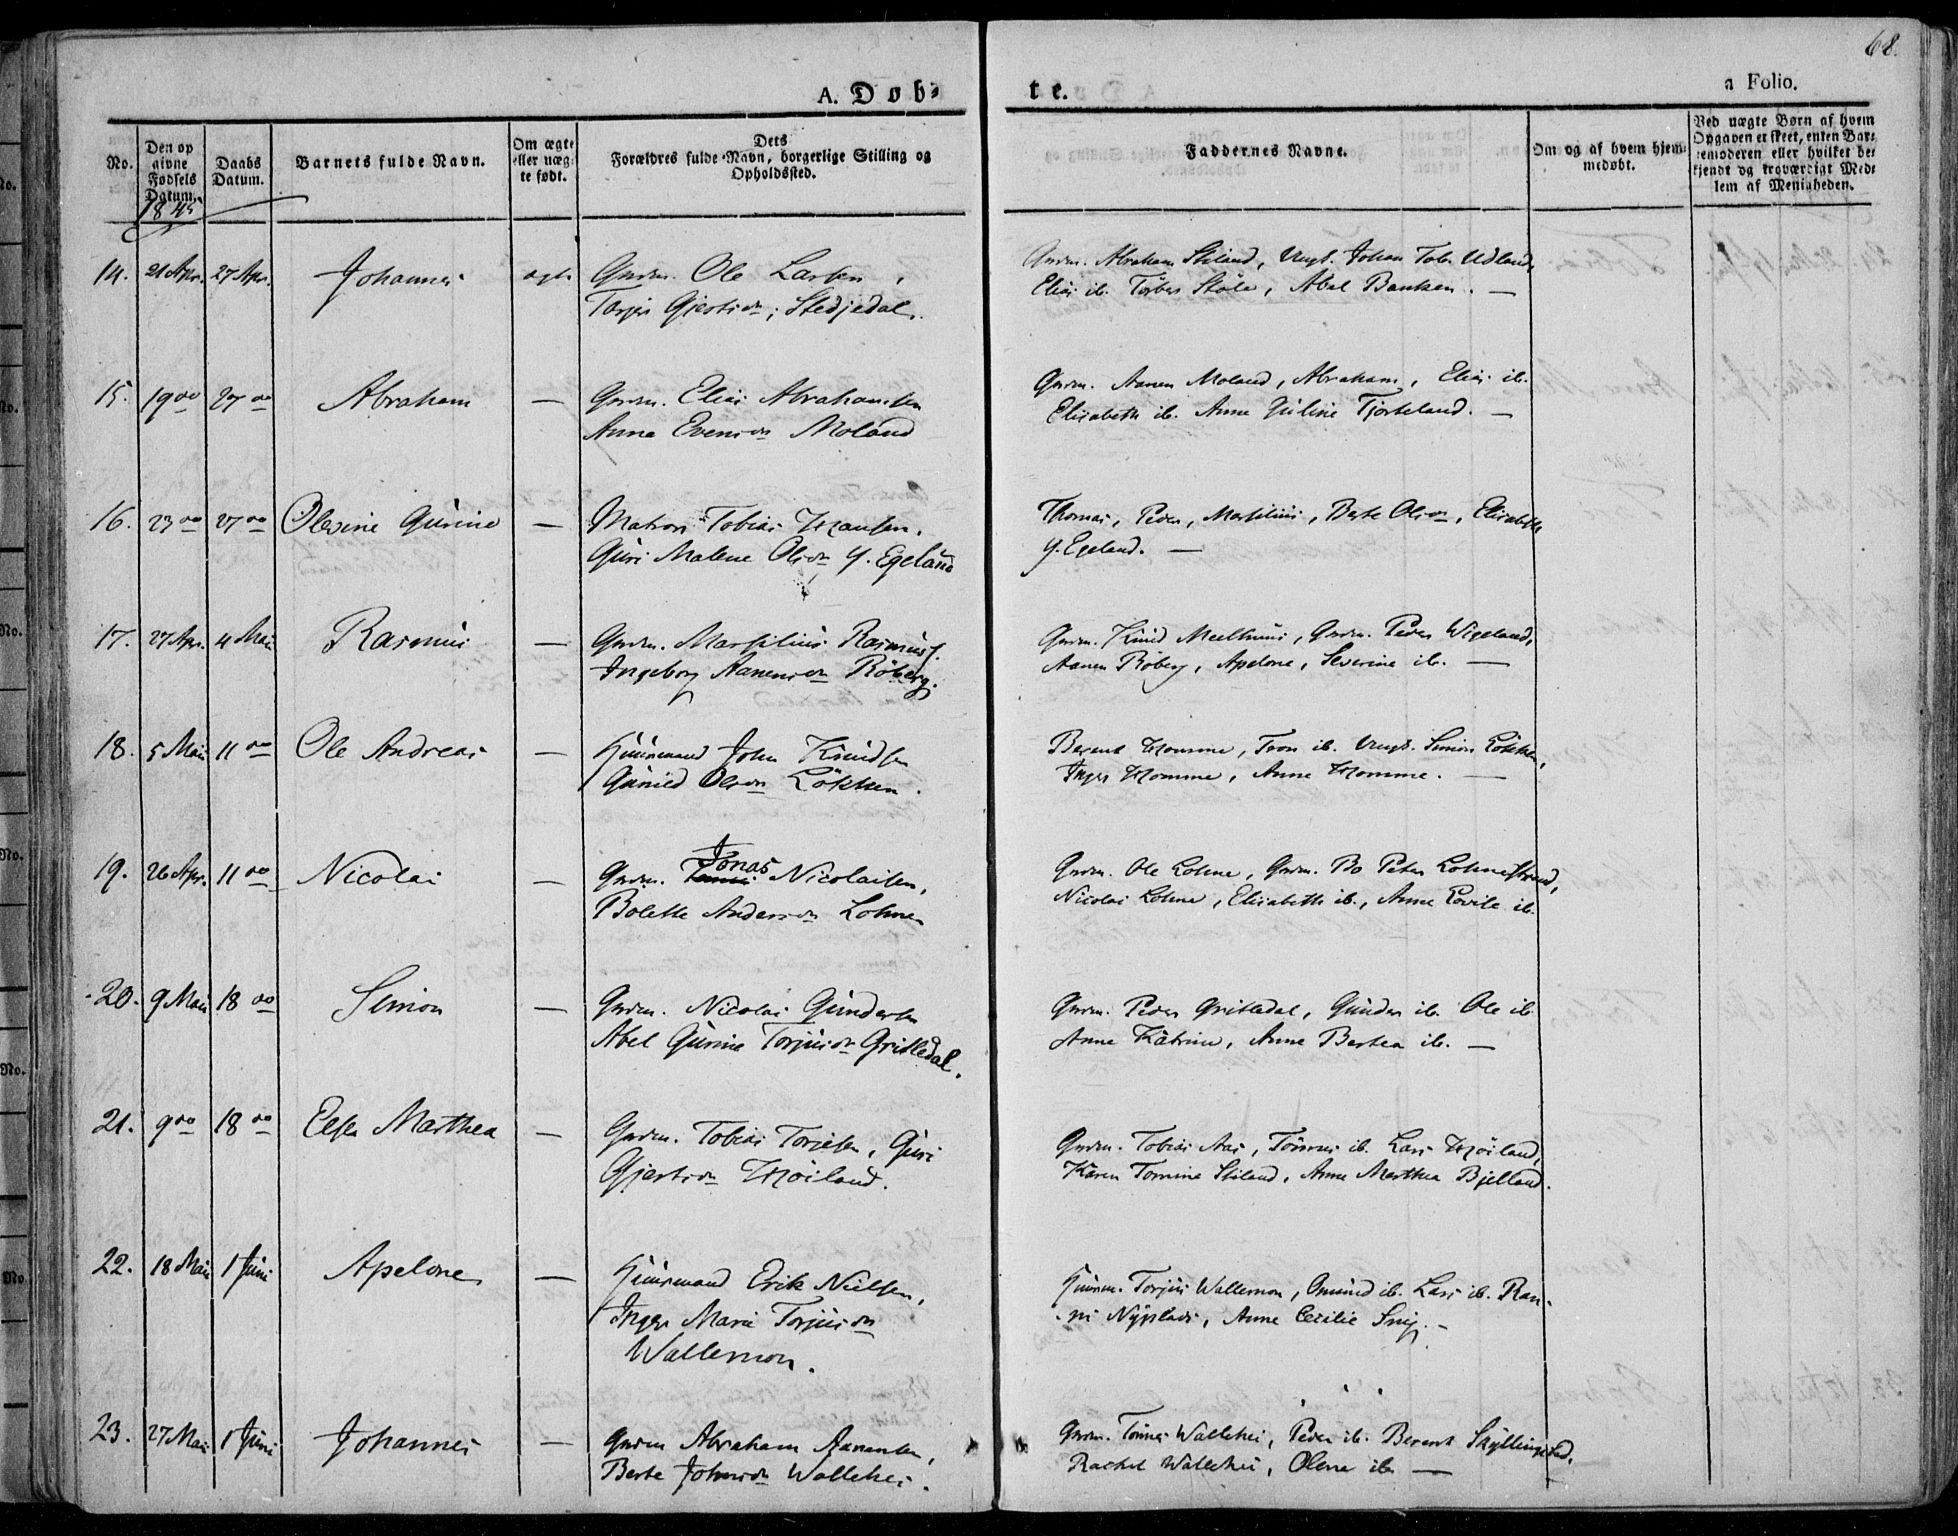 68.
A. Dob-
te.
a Folio.
No.
Den op
givne
Fødsels
Datum.
Daabs
Datum.
Barnets fulde Navn.
Om ægte
eller uæg-
te født.
Dets
Forældres fulde Navn, borgerlige Stilling og
Opholdssted.
Faddernes Navne.
Om og af hvem hjem-
medøbt.
Ved uægte Børn af hvem
Opgaven er skeet, enten Bar-
nemoderen eller hvilket be-
kjendt og troværdigt Med-
lem af Menigheden.
1845
14. 21 Apr. 27 Apr. Johannes ægte Gaardm. Ole Larsen,
Gjertsdr; Stedjedal.
Gaardm. Abraham Stiland, Ungk. Johan Tob. Udland,
Elias ib. Støle, Abel Banken. —
15. 19 do 27 do Abraham — Gaardm. Elias Abrahamsen
Anna Evensdr Moland
Gaardm. Aanen Moland, Abraham, Elias ib.
Elisabeth ib. Anne Juline Tjorteland. —
16. 23 do 27 do Olevine Gurine — Matros Tobias Hansen,
Guri Malene Olsdr Y. Egeland
Thomas, Peder, Marsilius, Berte Olsdr, Elisabeth
Y. Egeland. —
17. 27 Apr. 4 Mai Rasmus — Gaardm. Marsilius Rasmuss.
Ingeborg Aanensdr Röberg.
Gaardm. Knud Meelhuus, Gaardm. Peder Wigeland,
Aanen Röberg, Apelone, Severine ib. —
18. 5 Mai 11 do Ole Andreas — Huusmand John Knudsen
Gunild Olsdr Lökken.
Berent Homme, Tron ib. Ungk. Simon Lökken,
Inger Homme, Anne Homme. —
19. 26 Apr. 11 do Nicolai — Gaardm. Jonas Nicolaisen,
Bolette Andersdr Lohne
Gaardm. Ole Lohne, Gaardm. Bo Peter Lohnestrand,
Nicolai Lohne, Elisabeth ib., Anne Lovise ib.
20. 9 Mai 18 do Simon — Gaardm. Nicolai Gundersen
Abel Gurine Torjusdr Gritledal.
Gaardm. Peder Gritledal, Gunder ib. Ole ib.
Anne Katrine, Anne Bertea ib. —
21. 9 do 18 do Else Marthea — Gaardm. Tobias Torjesen, Guri
Gjertsdr Höiland.
Gaardm. Tobias Aas, Tönnes ib. Lars Höiland,
Karen Tomine Stiland, Anne Marthea Bjelland.
22. 18 Mai 1 Juni Apelone — Huusmand Erik Nielsen,
Inger Marie Torjusdr
Wallemon.
Huusm. Torjus Wallemon, Omund ib. Lars ib. Ran-
Nyplads, Anne Cecilie Snig. —
23. 27 Mai 1 Juni Johannes — Gaardm Abraham Aanensen,
Berte Johnsdr Wallehei.
Gaardm. Tönnes Wallehei, Peder ib. Berent Skyllingstad,
Rachel Wallehei, Olene ib —